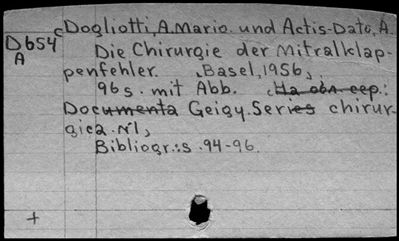 Dogliotti, A. Mario. und Actis-Dato, A.
D654
A
Die Chirurgie der Mitralklap-
penfehler. Basel, 1956,
96 s. mit Abb. На обл сер.:
Documenta Geigy. Series chirur-
gica. N1,
Bibliogr.: s. 94-96.
+